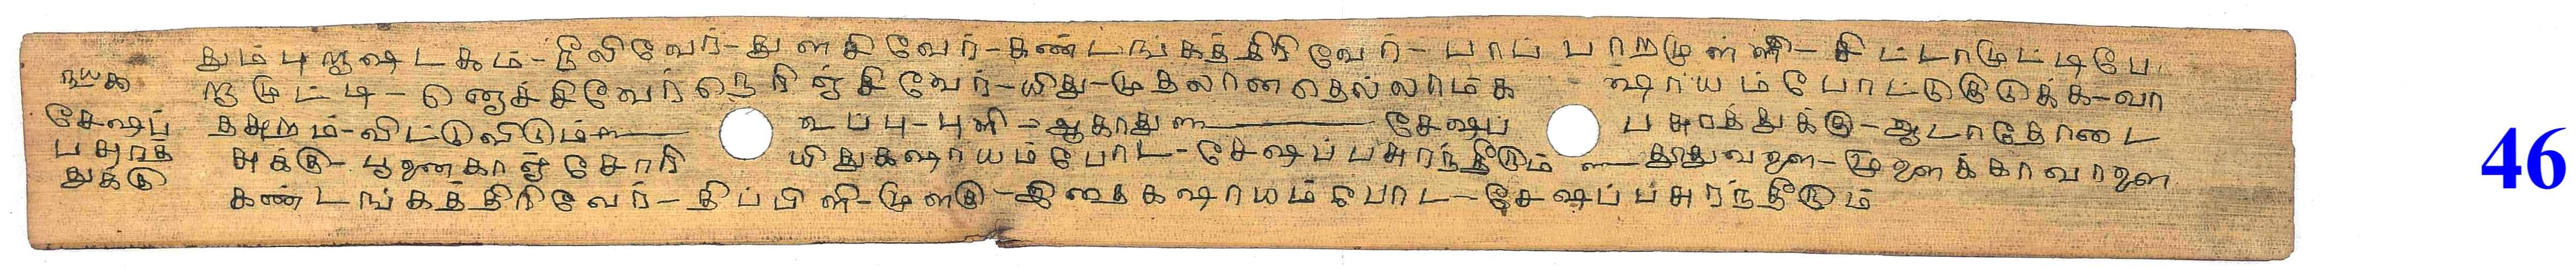 நயக
தும் புருஷடகம்-நீலிவேர்-துளசிவேர்-கண்டங்கத்திரிவேர்-பாப்பாறமுள்ளி-சிட்டாமுட்டிபே
ருமுட்டி-னெச்சிவேர் நெரிஞ்சிவேர்-யிது-முதலானதெல்லாம் க ஷாயம் போட்டுகுடுக்க-வா
சேஷப் பசுரத் துக்கு
தசுறம்-விட்டுவிடும் உப்பு-புளி-ஆகாது சேஷப் பசுரத்துக்கு-ஆடாதோடை
சுக்கு-பூனைகாஞ்சோரி யிதுகஷாயம் போட-சேஷப்பசுரந்தீடும் தூதுவளை-மூளைக்காவாளை
கண்டங்கத்திரிவேர்-திப்பிளி-முளகு-இதை கஷாயம் போட-சேஷப்பசுரந்தீரும்
46